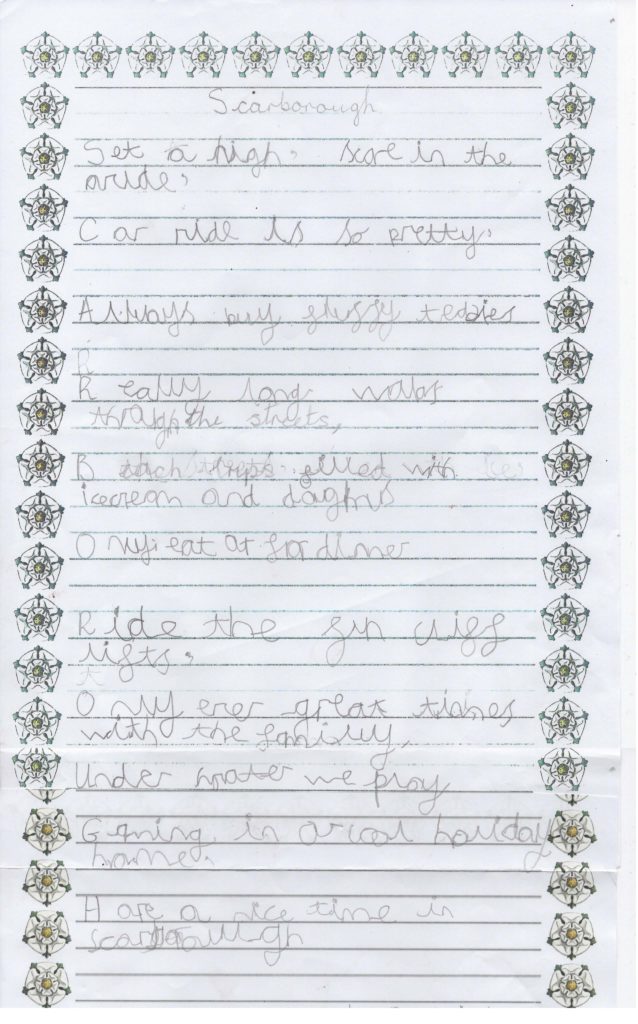 Scarborough
Set a high. score in the
ride.
Car ride is so pretty.
Always buy fluffy teddies
R
Really long walks
through the streets,
Beach trips filled with ice
icecream and
Only eat at for dinner
Ride the fun cliff
lifts.
Only ever great times
with the family.
Under water we play
Gaming in a cool holiday
home.
Have a nice time in
scarborough